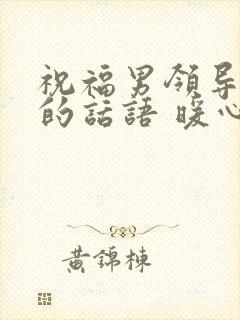 祝福男領导
的話語 暖心
黄錦棟